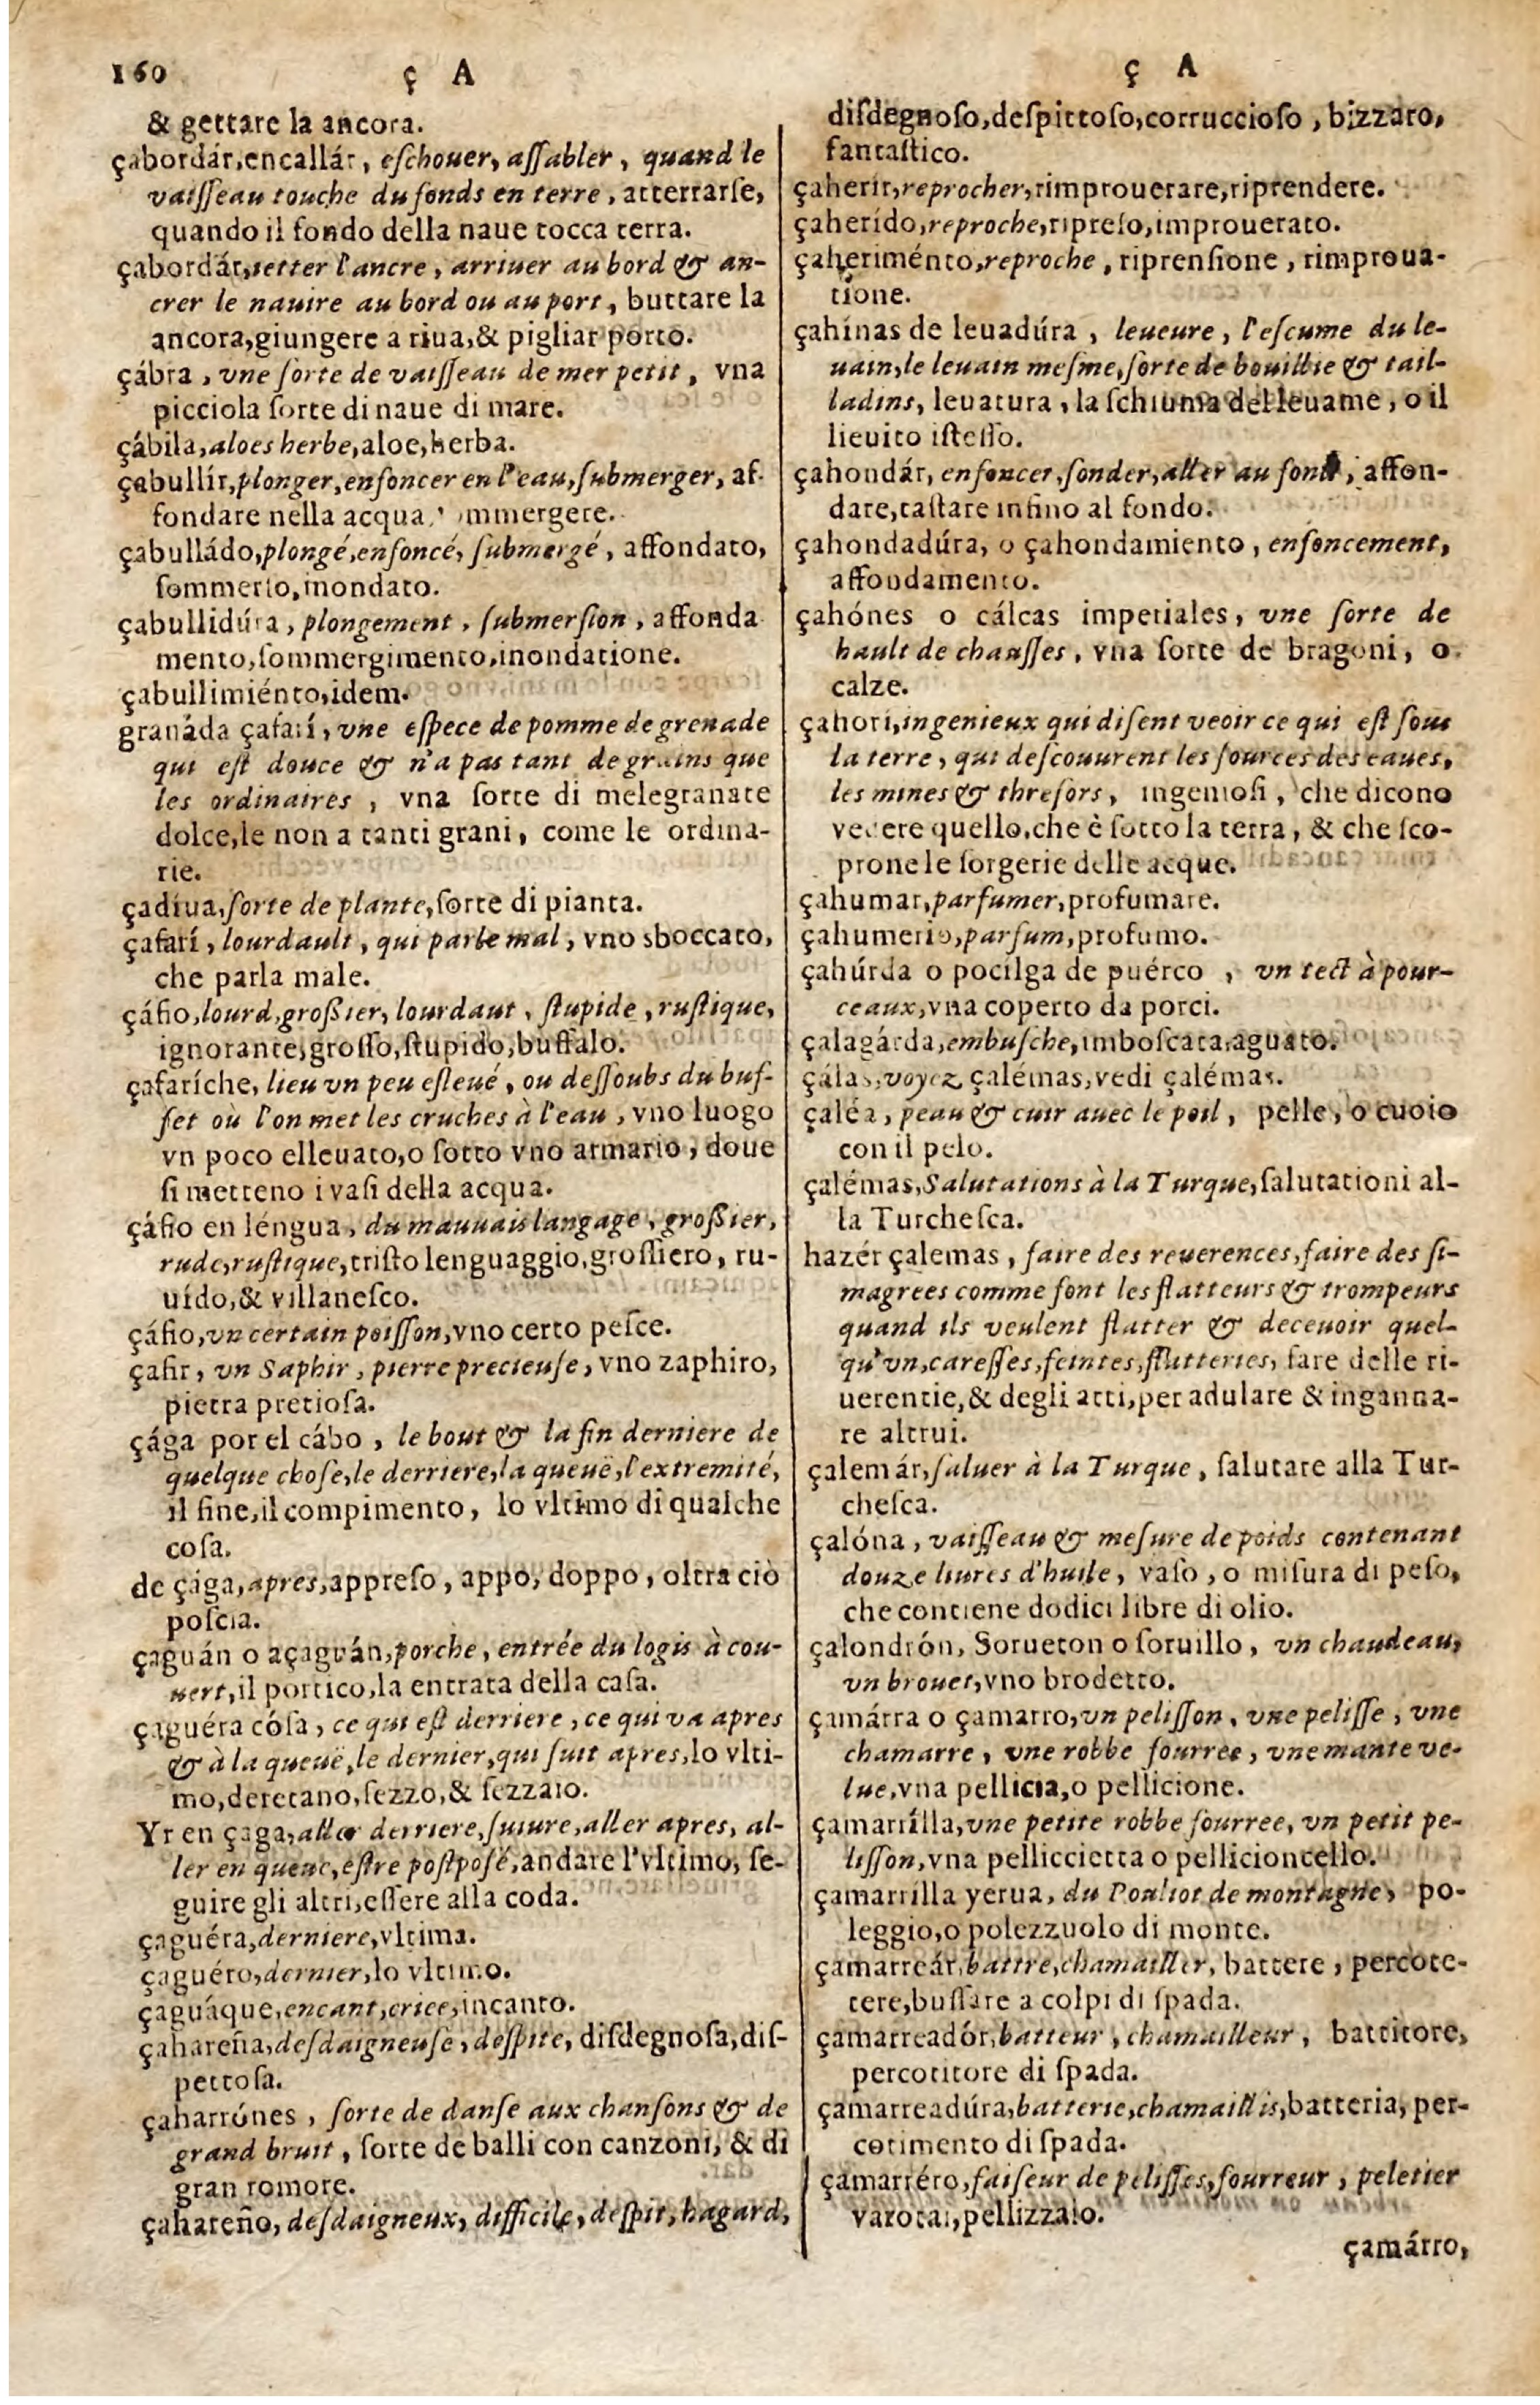 160
ç A
& gettare la ancora.
çabordár,encallár, eſchouer, aſſabler, quand le
vaiſſeau touche du fonds en terre, atterrarſe,
quando il fondo della naue tocca terra.
çabordár,ietter l'ancre, arriuer au bord & an-
crer le nauire au bord ou au port, buttare la
ancora,giungere a riua,& pigliar porto.
çábra, vne ſorte de vaiſſeau de mer petit, vna
picciola ſorte di naue di mare.
çábila,aloes herbe,aloe,herba.
çabullír,plonger,enfoncer en l'eau,ſubmerger, af-
fondare nella acqua, ommergere.
çabulládo,plongé,enfoncé, ſubmergé, affondato,
ſommerſo,inondato.
çabullidúra, plongement, ſubmerſion, affonda
mento,ſommergimento,inondatione.
çabullimiénto,idem.
granáda çafarí, vne eſpece de pomme de grenade
qui eſt douce & n'a pas tant de grains que
les ordinaires, vna ſorte di melegranate
dolce,le non a tanti grani, come le ordina-
rie.
çadíua,ſorte de plante,ſorte di pianta.
çafarí, lourdault, qui parle mal, vno sboccato,
che parla male.
çáfio,lourd,groſsier, lourdaut, ſtupide, ruſtique,
ignorante,groſſo,ſtupido,buffalo.
çafaríche, lieu vn peu eſleué, ou deſſoubs du buf-
fet où l'on met les cruches à l'eau, vno luogo
vn poco elleuato,o ſotto vno armario, doue
ſi metteno i vaſi della acqua.
çáfio en léngua, du mauuais langage, groſsier,
rude,ruſtique,triſto lenguaggio,groſſiero, ru-
uído,& villaneſco.
çáfio,vn certain poiſſon,vno certo peſce.
çafir, vn Saphir, pierre precieuſe, vno zaphiro,
pietra pretioſa.
çága por el cábo, le bout & la fin derniere de
quelque choſe,le derriere,la queuë,l'extremité,
il fine,il compimento, lo vltimo di qualche
coſa.
de çága,apres,appreſo, appo, doppo, oltra ciò
poſcia.
çaguán o açaguán,porche, entrée du logis à cou-
uert,il portico,la entrata della caſa.
çaguéra cóſa, ce qui eſt derriere, ce qui va apres
& à la queuë,le dernier,qui ſuit apres,lo vlti-
mo,deretano,ſezzo,& ſezzaio.
Yr en çaga,aller derriere,ſuiure,aller apres, al-
ler en queuc,eſtre poſtpoſé,andare l'vltimo, ſe-
guire gli altri,eſſere alla coda.
çaguéra,derniere,vltima.
çaguéro,dernier,lo vltimo.
çaguáque,encant,criee,incanto.
çahareña,deſdaigneuſe, deſpite, diſdegnoſa,diſ-
pettoſa.
çaharrónes, ſorte de danſe aux chanſons & de
grand bruit, ſorte de balli con canzoni, & di
gran romore.
çahareño, deſdaigneux, difficile, deſpit, hagard,
ç A
diſdegnoſo,deſpittoſo,corruccioſo, bizzaro,
fantaſtico.
çaherír,reprocher,rimprouerare,riprendere.
çaherído,reproche,ripreſo,improuerato.
çaheriménto,reproche, riprenſione, rimproua-
tione.
çahínas de leuadúra, leueure, l'eſcume du le-
uain,le leuain meſme,ſorte de bouillie & tail-
ladins, leuatura, la ſchiuma del leuame, o il
lieuito iſteſſo.
çahondár, enfoncer,ſonder,aller au fond, affon-
dare,taſtare inſino al fondo.
çahondadúra, o çahondamiento, enfoncement,
affondamento.
çahónes o cálças imperiales, vne ſorte de
hault de chauſſes, vna ſorte de bragoni, o
calze.
çahorí,ingenieux qui diſent veoir ce qui eſt ſous
la terre, qui deſcouurent les ſources des eaues,
les mines & threſors, ingenioſi, che dicono
vedere quello,che è ſotto la terra, & che ſco-
prone le ſorgerie delle acque.
çahumar,parfumer,profumare.
çahumerio,parfum,profumo.
çahúrda o pocilga de puérco, vn tect à pour-
ceaux,vna coperto da porci.
çalagárda,embuſche,imboſcata,aguato.
çálas,voyez çalémas,vedi çalémas.
çaléa, peau & cuir auec le poil, pelle, o cuoio
con il pelo.
çalémas,Salutations à la Turque,ſalutationi al-
la Turcheſca.
hazér çalemas, faire des reuerences,faire des ſi-
magrees comme font les flatteurs & trompeurs
quand ils veulent flatter & deceuoir quel-
qu'vn,careſſes,feintes,flatteries, fare delle ri-
uerentie,& degli atti,per adulare & inganna-
re altrui.
çalemár,ſaluer à la Turque, ſalutare alla Tur-
cheſca.
çalóna, vaiſſeau & meſure de poids contenant
douze liures d'huile, vaſo, o miſura di peſo,
che contiene dodici libre di olio.
çalondrón, Sorueton o ſoruillo, vn chaudeau,
vn brouet,vno brodetto.
çamárra o çamarro,vn peliſſon, vne peliſſe, vne
chamarre, vne robbe fourree, vne mante ve-
lue,vna pellicia,o pellicione.
çamarrílla,vne petite robbe fourree, vn petit pe-
liſſon,vna pelliccietta o pellicioncello.
çamarrilla yerua, du Pouliot de montagne, po-
leggio,o polezzuolo di monte.
çamarreár,battre,chamailler, battere, percote-
tere,buſſare a colpi di ſpada.
çamarreadór,batteur, chamailleur, battitore,
percotitore di ſpada.
çamarreadúra,batterie,chamaillis,batteria, per-
cotimento di ſpada.
çamarréro,faiſeur de peliſſes,fourreur, peletier
varotai,pellizzaio.
çamárro,